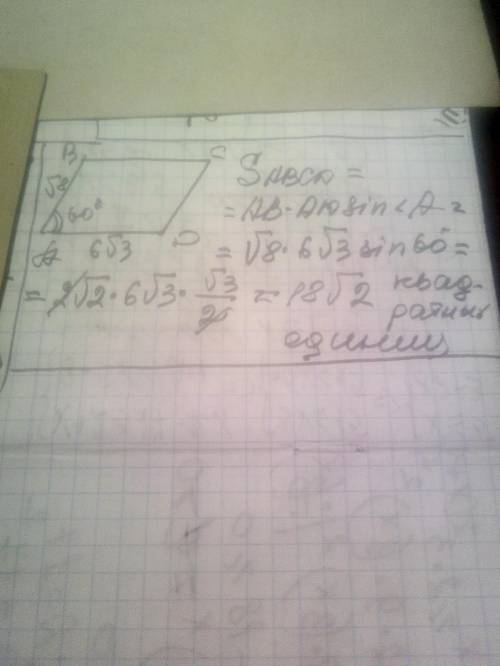 B C
√8 60°
A 6√3 D
S ABCD =
= AB·AD sin<A =
= √8·6√3 sin60° =
= 2√2·6√3·√3/2 = 18√2 квад-
ратных
единиц